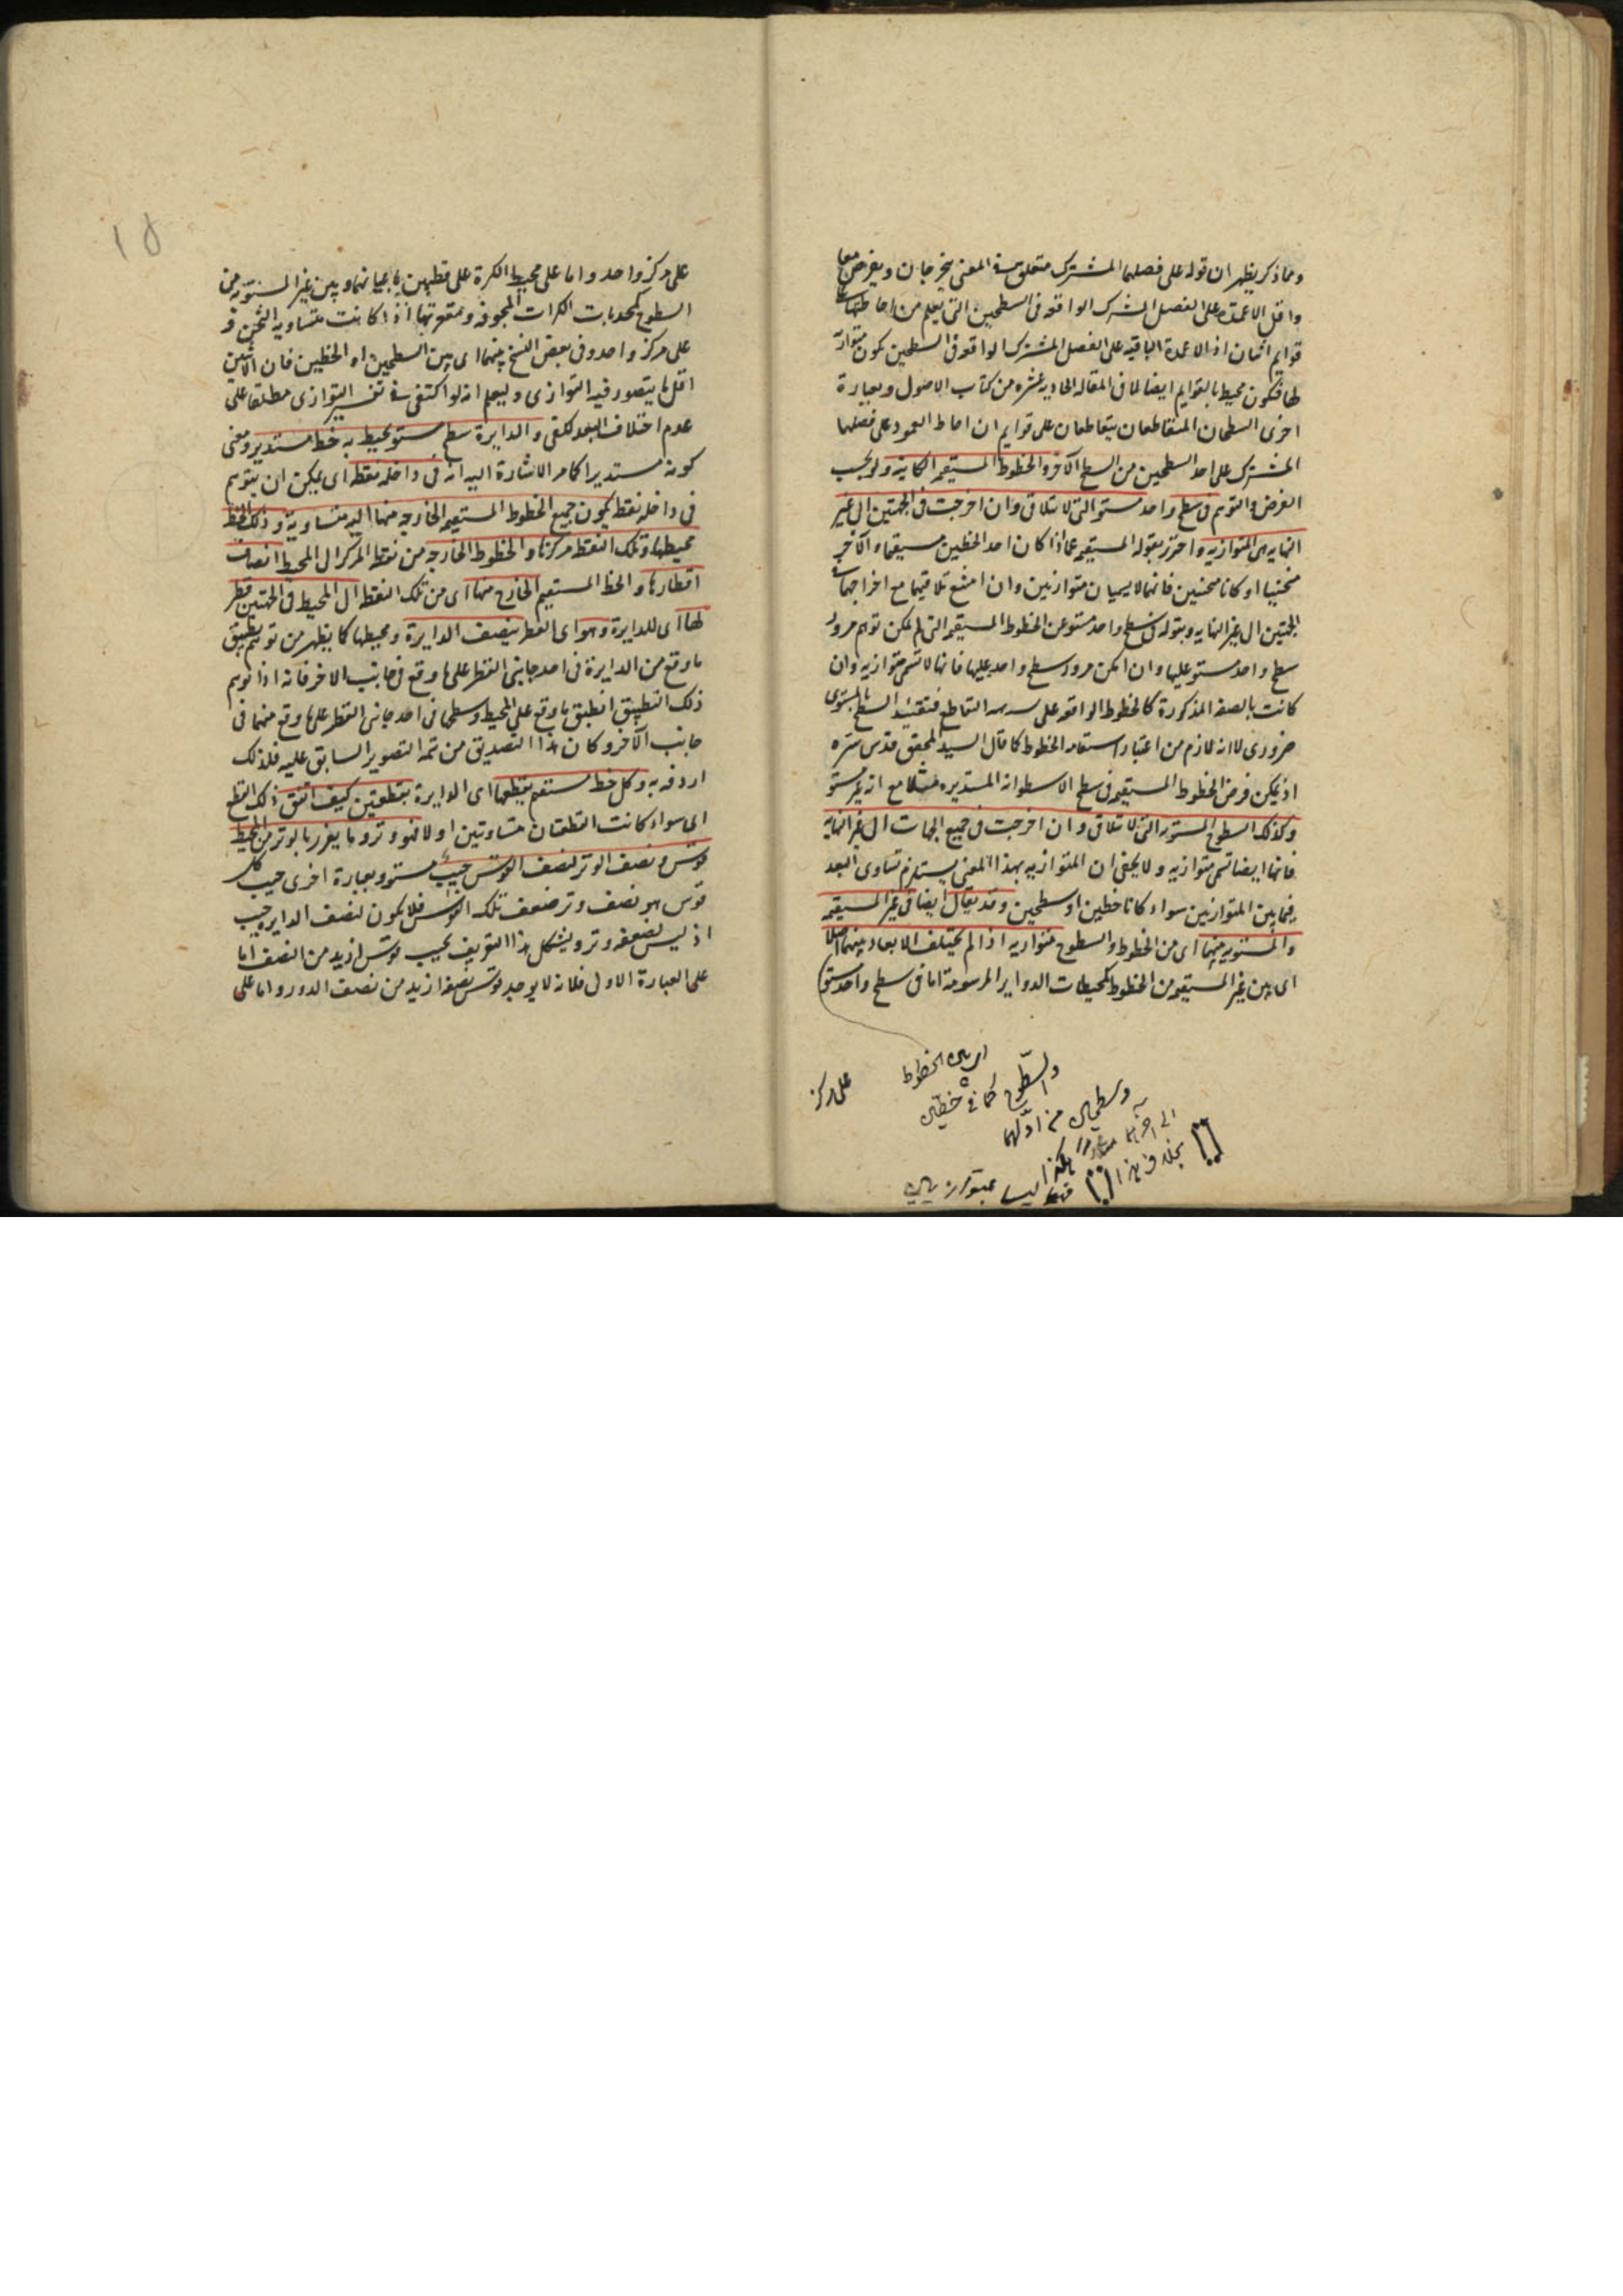 ومما ذكر يظهر ان قوله على فصلهما المشترك متعلق في المعنى بيخرجان ويفرض معا
واقل الاعمدة على الفصل المشترك الواقعة في السطحين التي يعلم من احاطتها
قوايم اثنان اذ الاعمدة الباقية على الفصل المشترك الواقعة في السطحين يكون متوازية
لها فيكون محيطا بالقوايم ايضا لما في المقالة الحادية عشرة من كتاب الاصول وبعبارة
اخرى السطحان المتقاطعان يتقاطعان على قوايم ان احاط العمود على فصلهما
المشترك على احد السطحين من السطح الآخر والخطوط المستقيمة الكاينة ولو بحسب
الفرض والتوهم في سطح واحد مستو التي لا تتلاقى وان اخرجت في الجهتين الى غير
النهاية هي المتوازية واحترز بقوله المستقيمة عما اذا كان احد الخطين مستقيما والآخر
منحنيا او كانا منحنيين فانهما لا يسميان متوازيين وان امتنع تلاقيهما مع اخراجهما في
الجهتين الى غير النهاية وبقوله في سطح واحد مستو عن الخطوط المستقيمة التي لم يمكن توهم مرور
سطح واحد مستو عليها وان امكن مرور سطح واحد عليها فانها لا تسمى متوازية وان
كانت بالصفة المذكورة كالخطوط الواقعة على التقاطع فتقييد السطح بالمستوي
ضروري لا انه لازم من اعتبار استقامة الخطوط كما قال السيد المحقق قدس سره
اذ يمكن فرض الخطوط المستقيمة في سطح الاسطوانة المستديرة مثلا مع انه غير مستو
وكذلك السطوح المستوية التي لا تتلاقى وان اخرجت في جميع الجهات الى غير النهاية
فانها ايضا تسمى متوازية ولا يخفى ان المتوازية بهذا المعنى يستلزم تساوى البعد
فيما بين المتوازيين سواء كانا خطين او سطحين وقد يقال ايضا في غير المستقيمة
والمستوية منهما اى من الخطوط والسطوح متوازية اذا لم يختلف الابعاد بينهما اصلا
اى بين غير المستقيمة من الخطوط كمحيطات الدواير المرسومة اما في سطح واحد مستو
اى بين الخطوط
والسطوح كما في خطين
وسطحين من اولهما
الى آخرهما
بخلاف هذا
على مركز
١٥
على مركز واحد واما على محيط الكرة على قطبين باعيانهما وبين غير المستوية من
السطوح كمحدبات الكرات المجوفة ومقعراتها اذا كانت متساوية الثخن و
على مركز واحد وفي بعض النسخ بينهما اى بين السطحين او الخطين فان الاثنين
اقل ما يتصور فيه التوازى وليعلم انه لو اكتفى في تفسير التوازى مطلقا على
عدم اختلاف البعد لكفى والدايرة سطح مستو يحيط به خط مستدير ومعنى
كونه مستديرا كما مر الاشارة اليه انه في داخله نقطة اى يمكن ان يتوهم
في داخله نقطة يكون جميع الخطوط المستقيمة الخارجة منها اليه متساوية وذلك الخط
محيطها وتلك النقطة مركزها والخطوط الخارجة من نقطة المركز الى المحيط انصاف
اقطارها والخط المستقيم الخارج منها اى من تلك النقطة الى المحيط في الجهتين قطر
لها اى للدايرة وهو اى القطر ينصف الدايرة ومحيطها كما يظهر من توهم تطبيق
ما وقع من الدايرة في احد جانبى القطر على ما وقع في جانب الاخر فانه اذا توهم
ذلك التطبيق انطبق ما وقع على المحيط وسطحها في احد جانبى القطر على ما وقع منهما في
جانب الآخر وكان هذا التصديق من تتمة التصوير السابق عليه فلذلك
اردفه به وكل خط مستقيم يقطعها اى الدايرة بقطعتين كيف اتفق ذلك القطع
اى سواء كانت القطعتان متساويتين او لا فهو وتر وما يفرز بالوتر من المحيط
قوس ونصف الوتر لنصف القوس جيب مستو وبعبارة اخرى جيب كل
قوس هو نصف وتر ضعف تلك القوس فلا يكون لنصف الداير جيب
اذ ليس لضعفه وتر ويشكل هذا التعريف بجيب قوس ازيد من النصف اما
على العبارة الاولى فلانه لا يوجد قوس نصفه ازيد من نصف الدور واما على